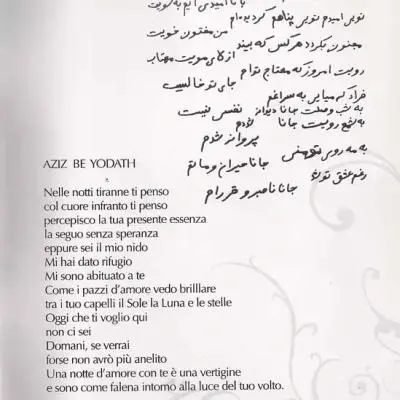 تویی امیدم تویی پناهم
من مفتون خویت
مجنون
رویت امروز که محتاج توام
جای تو خالیست
فردا که میایی به سراغم
نفسی نیست
به شب وصلت جانا دیوانه شدم
به شمع رویت جانا پروانه شدم
به مه روی
جانا حیران و ماتم
جانا صبر و قرارم
AZIZ BE YODATH
Nelle notti tiranne ti penso
col cuore infranto ti penso
percepisco la tua presente essenza
la seguo senza speranza
eppure sei il mio nido
Mi hai dato rifugio
Mi sono abituato a te
Come i pazzi d'amore vedo brilllare
tra i tuoi capelli il Sole la Luna e le stelle
Oggi che ti voglio qui
non ci sei
Domani, se verrai
forse non avrò più anelito
Una notte d'amore con te è una vertigine
e sono come falena intorno alla luce del tuo volto.